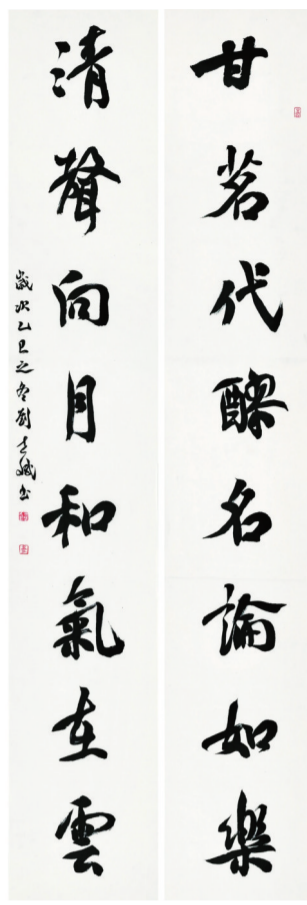 甘茗代醪名論如樂
清聲向月和氣在雲
歲次乙巳之冬劉書